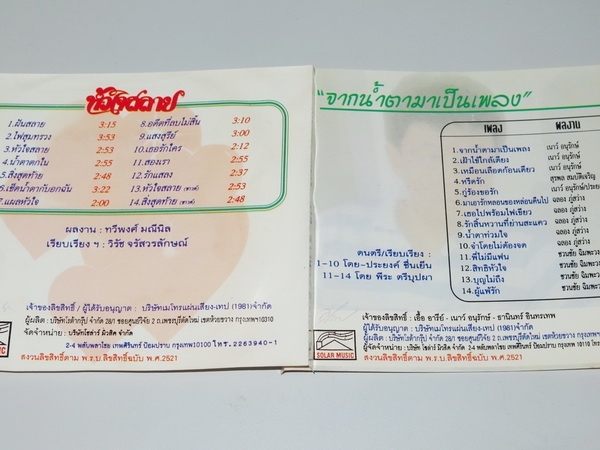 หัวใจสลาย
1.ฝันสลาย 3:15
2.ไฟสุมทรวง 3:53
3.หัวใจสลาย 2:53
4.น้ำตาตกใน 2:55
5.สิ่งสุดท้าย 2:48
6.เช็ดน้ำตากับอกฉัน 3:22
7.แผลหัวใจ 2:00
8.อดีตที่ลบไม่สิ้น 3:10
9.แสงสุรีย์ 3:00
10.เธอรักใคร 2:12
11.สองเรา 2:55
12.รักแสลง 2:37
13.หัวใจสลาย 2:53
14.สิ่งสุดท้าย 2:48
ผลงาน : ทวีพงศ์ มณีนิล
เรียบเรียง ฯ : วิรัช จรัสวรลักษณ์
เจ้าของลิขสิทธิ์ / ผู้ได้รับอนุญาต : บริษัทเมโทรแผ่นเสียง-เทป (1981)จำกัด
ผู้ผลิต : บริษัทโตต้ากรุ๊ป จำกัด 28/1 ซอยศูนย์วิจัย 2 ถ.เพชรบุรีตัดใหม่ เขตห้วยขวาง กรุงเทพฯ10310
จัดจำหน่าย : บริษัทโซล่าร์ มิวสิค จำกัด
2-4 พลับพลาไชย เทพศิรินทร์ ป้อมปราบ กรุงเทพฯ10100 โทร.2263940-1
สงวนลิขสิทธิ์ตาม พ.ร.บ.ลิขสิทธิ์ฉบับ พ.ศ.2521
"จากน้ำตามาเป็นเพลง"
เพลง ผลงาน
1.จากน้ำตามาเป็นเพลง เนาว์ อนุรักษ์
2.เฝ้าใช้ใกล้เตียง เนาว์ อนุรักษ์
3.เหมือนเลือดก้อนเดียว เนาว์ อนุรักษ์
4.หรีดรัก สุรพล สมบัติเจริญ
5.กู่ร้องขอรัก
6.มาเอารักหลอนของหล่อนคืนไป ฉลอง ภู่สว่าง
7.เธอไปพร้อมไฟเขียว ฉลอง ภู่สว่าง
8.รักสิ้นหวานที่ย่านสะแคว ฉลอง ภู่สว่าง
9.น้ำตาท่วมใจ ฉลอง ภู่สว่าง
10.จำโดยไม่ต้องจด ฉลอง ภู่สว่าง
11.พี่ไม่มีแฟน ชวนชัย ฉิมพะวงศ์
12.สิทธิหัวใจ ชวนชัย ฉิมพะวง
13.บุญไม่ถึง ชวนชัย ฉิมพะว
14.ผู้แพ้รัก ชวนชัย ฉิมพะ
ดนตรี/เรียบเรียง :
1-10 โดย-ประยงค์ ชื่นเย็น
11-14 โดย พีระ ตรีบุปผา
เจ้าของลิขสิทธิ์ : เอื้อ อารีย์ - เนาว์ อนุรักษ์ - ธานินทร์ อินทรเทพ
ผู้ได้รับอนุญาต : บริษัทเมโทรแผ่นเสียง-เทป (1981)จำกัด
ผู้ผลิต : บริษัทโตต้ากรุ๊ป จำกัด 28/1 ซอยศูนย์วิจัย 2 ถ.เพชรบุรีตัดใหม่ เขตห้วยขวาง กรุงเทพฯ
ผู้จัดจำหน่าย : บริษัทโซล่าร์ มิวสิค จำกัด 2-4 พลับพลาไชย เทพศิรินทร์ ป้อมปราบ กรุงเทพฯ 10110 โทร
SOLAR MUSIC
สงวนลิขสิทธิ์ตาม พ.ร.บ.ลิขสิทธิ์ฉบับ พ.ศ.2521